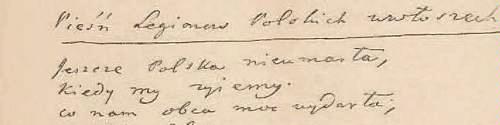 Pieśń Legionow Polskich wewłoszech
Jeszcze Polska nieumarła,
Kiedy my żyiemy.
co nam obca moc wydarła;